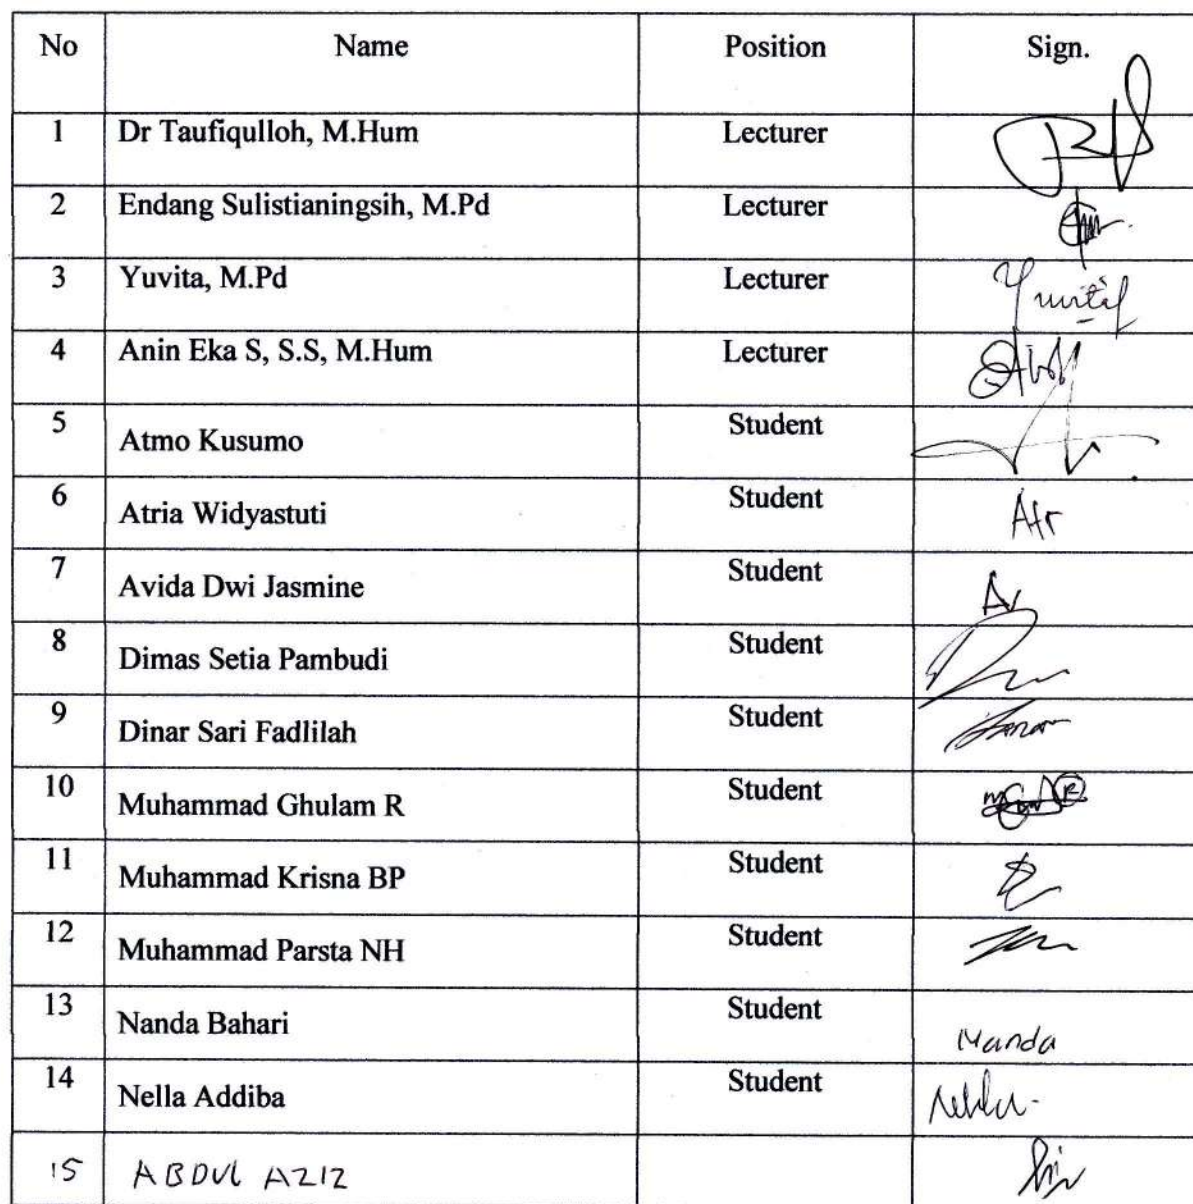 No Name Position Sign.
1 Dr Taufiqulloh, M.Hum Lecturer
2 Endang Sulistianingsih, M.Pd Lecturer
3 Yuvita, M.Pd Lecturer
4 Anin Eka S, S.S, M.Hum Lecturer
5 Atmo Kusumo Student
6 Atria Widyastuti Student Atr
7 Avida Dwi Jasmine Student
8 Dimas Setia Pambudi Student
9 Dinar Sari Fadlilah Student
10 Muhammad Ghulam R Student
11 Muhammad Krisna BP Student
12 Muhammad Parsta NH Student
13 Nanda Bahari Student Nanda
14 Nella Addiba Student
15 ABDUL AZIZ